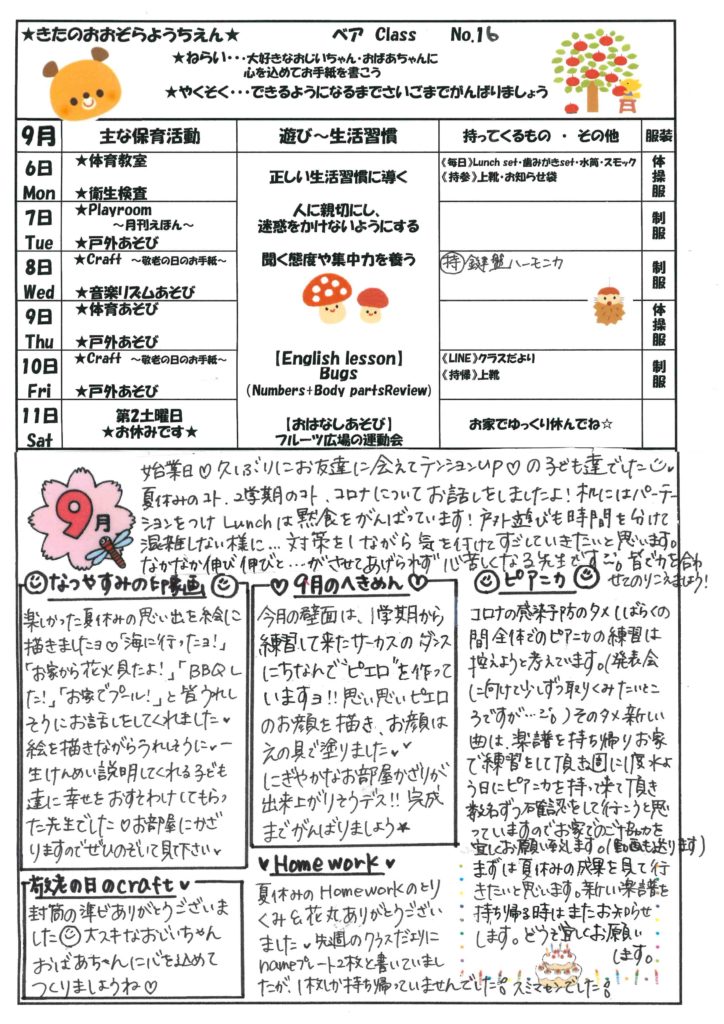 ★きたのおおぞらようちえん★ ベア Class No.16
★ねらい・・・大好きなおじいちゃん・おばあちゃんに
心を込めてお手紙を書こう
★やくそく・・・できるようになるまでさいごまでがんばりましょう
9月 主な保育活動 遊び～生活習慣 持ってくるもの ・ その他 服装
6日 Mon ★体育教室 ★衛生検査
正しい生活習慣に導く
《毎日》Lunch set・歯みがきset・水筒・スモック
《持参》上靴・お知らせ袋
体操服
7日 Tue ★Playroom ～月刊えほん～ ★戸外あそび
人に親切にし、
迷惑をかけないようにする
制服
8日 Wed ★Craft ～敬老の日のお手紙～ ★音楽リズムあそび
聞く態度や集中力を養う
持 鍵盤ハーモニカ
制服
9日 Thu ★体育あそび ★戸外あそび
体操服
10日 Fri ★Craft ～敬老の日のお手紙～ ★戸外あそび
【English lesson】
Bugs
(Numbers+Body partsReview)
《LINE》クラスだより
《持帰》上靴
制服
11日 Sat 第2土曜日
★お休みです★
【おはなしあそび】
フルーツ広場の運動会
お家でゆっくり休んでね☆
9月
始業日♡久しぶりにお友達に会えてテンションUP♡の子ども達でした
夏休みのコト、2学期のコト、コロナについてお話しをしましたよ!机にはパーテー
ションをつけLunchは黙食をがんばっています!戸外遊びも時間を分けて
混雑しない様に…対策をしながら気を付けてすごしていきたいと思います。
なかなか伸び伸びと…がさせてあげられず心苦しくなる先生です。皆で力を合わ
せてのりこえましょう!
なつやすみの印象画
楽しかった夏休みの思い出を絵に
描きましたヨ♡「海に行ったョ!」
「お家から花火見たよ!」「BBQし
た!」「お家でプール!」と皆うれし
そうにお話しをしてくれました♥
絵を描きながらうれしそうに♥一
生けんめい説明してくれる子ども
達に幸せをおすそわけしてもらっ
た先生でした♡お部屋にかざ
りますのでぜひのぞいて見て下さい♥
♡9月のへきめん♡
今月の壁面は、1学期から
練習して来たサーカスのダンス
にちなんで"ピエロ"を作って
いますヨ!!思い思いピエロ
のお顔を描き、お顔は
えの具で塗りました♥
にぎやかなお部屋かざりが
出来上がりそうデス!!完成
までがんばりましょう★
ピアニカ
コロナの感染予防のタメしばらくの
間全体でのピアニカの練習は
控えようと考えています。(発表会
に向けて少しずつ取りくみたいとこ
ろですが…。)そのタメ新しい
曲は、楽譜を持ち帰りお家
で練習をして頂き週に1度水よ
う日にピアニカを持って来て頂き
数名ずつ確認をして行こうと思
っていますのでお家でのご協力を
宜しくお願い致します。(動画も送ります)
まずは夏休みの成果を見て行
きたいと思います。新しい楽譜を
持ち帰る時はまたお知らせ
します。どうぞ宜しくお願い
します。
敬老の日のcraft♥
封筒の準ビありがとうございま
した 大スキなおじいちゃん
おばあちゃんに心を込めて
つくりましょうね♡
♥Homework♥
夏休みのHomeworkのとり
くみ&花丸ありがとうござい
ました♥先週のクラスだよりに
nameプレート2枚と書いていまし
たが、1枚しか持ち帰っていませんでした!スミマセンでした!